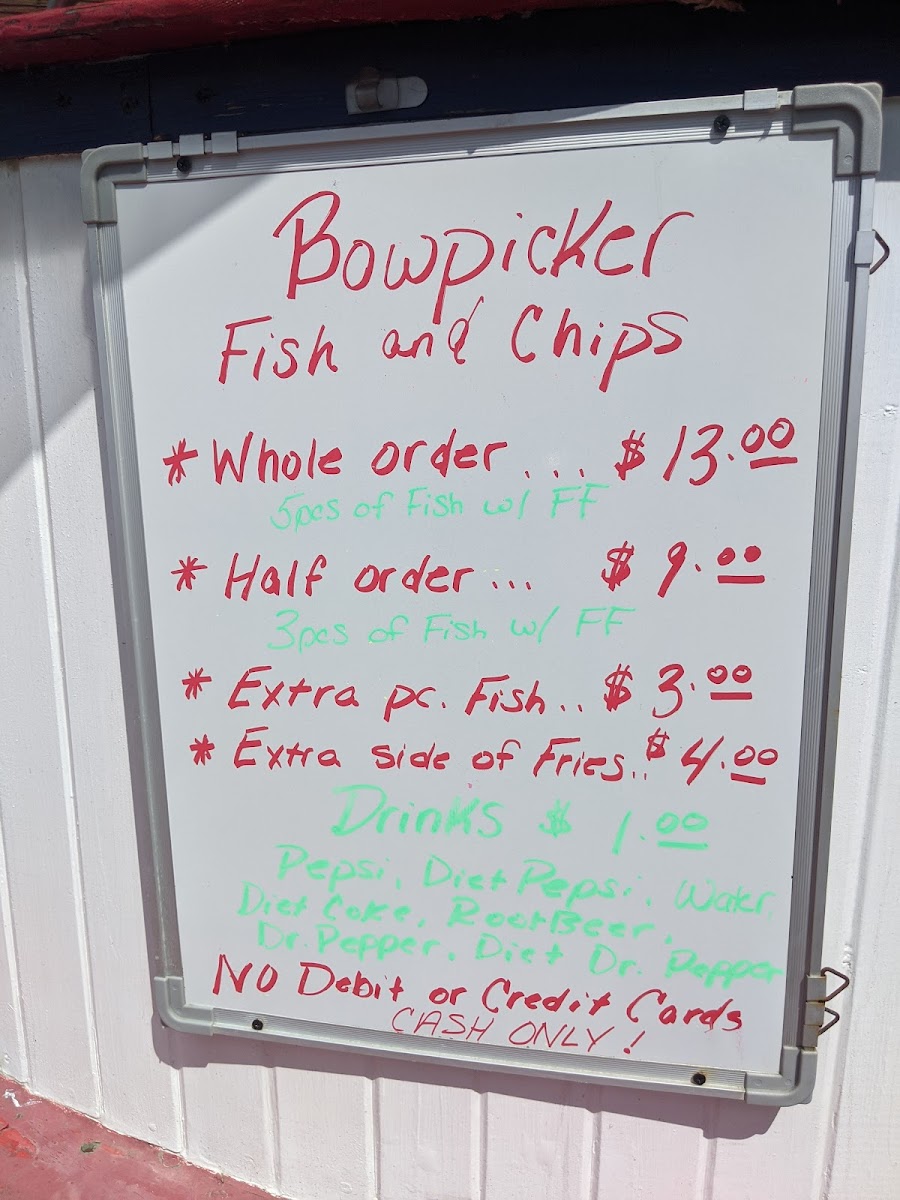 Bowpicker
Fish and Chips
* Whole order .... $ 13.00
5pcs of Fish w/ FF
* Half order ... $ 9.00
3pcs of Fish w/ FF
* Extra pc. Fish .. $ 3.00
* Extra side of Fries .. $ 4.00
Drinks $ 1.00
Pepsi, Diet Pepsi, Water,
Diet Coke, RootBeer,
Dr. Pepper, Diet Dr. Pepper
NO Debit or Credit Cards
CASH ONLY!